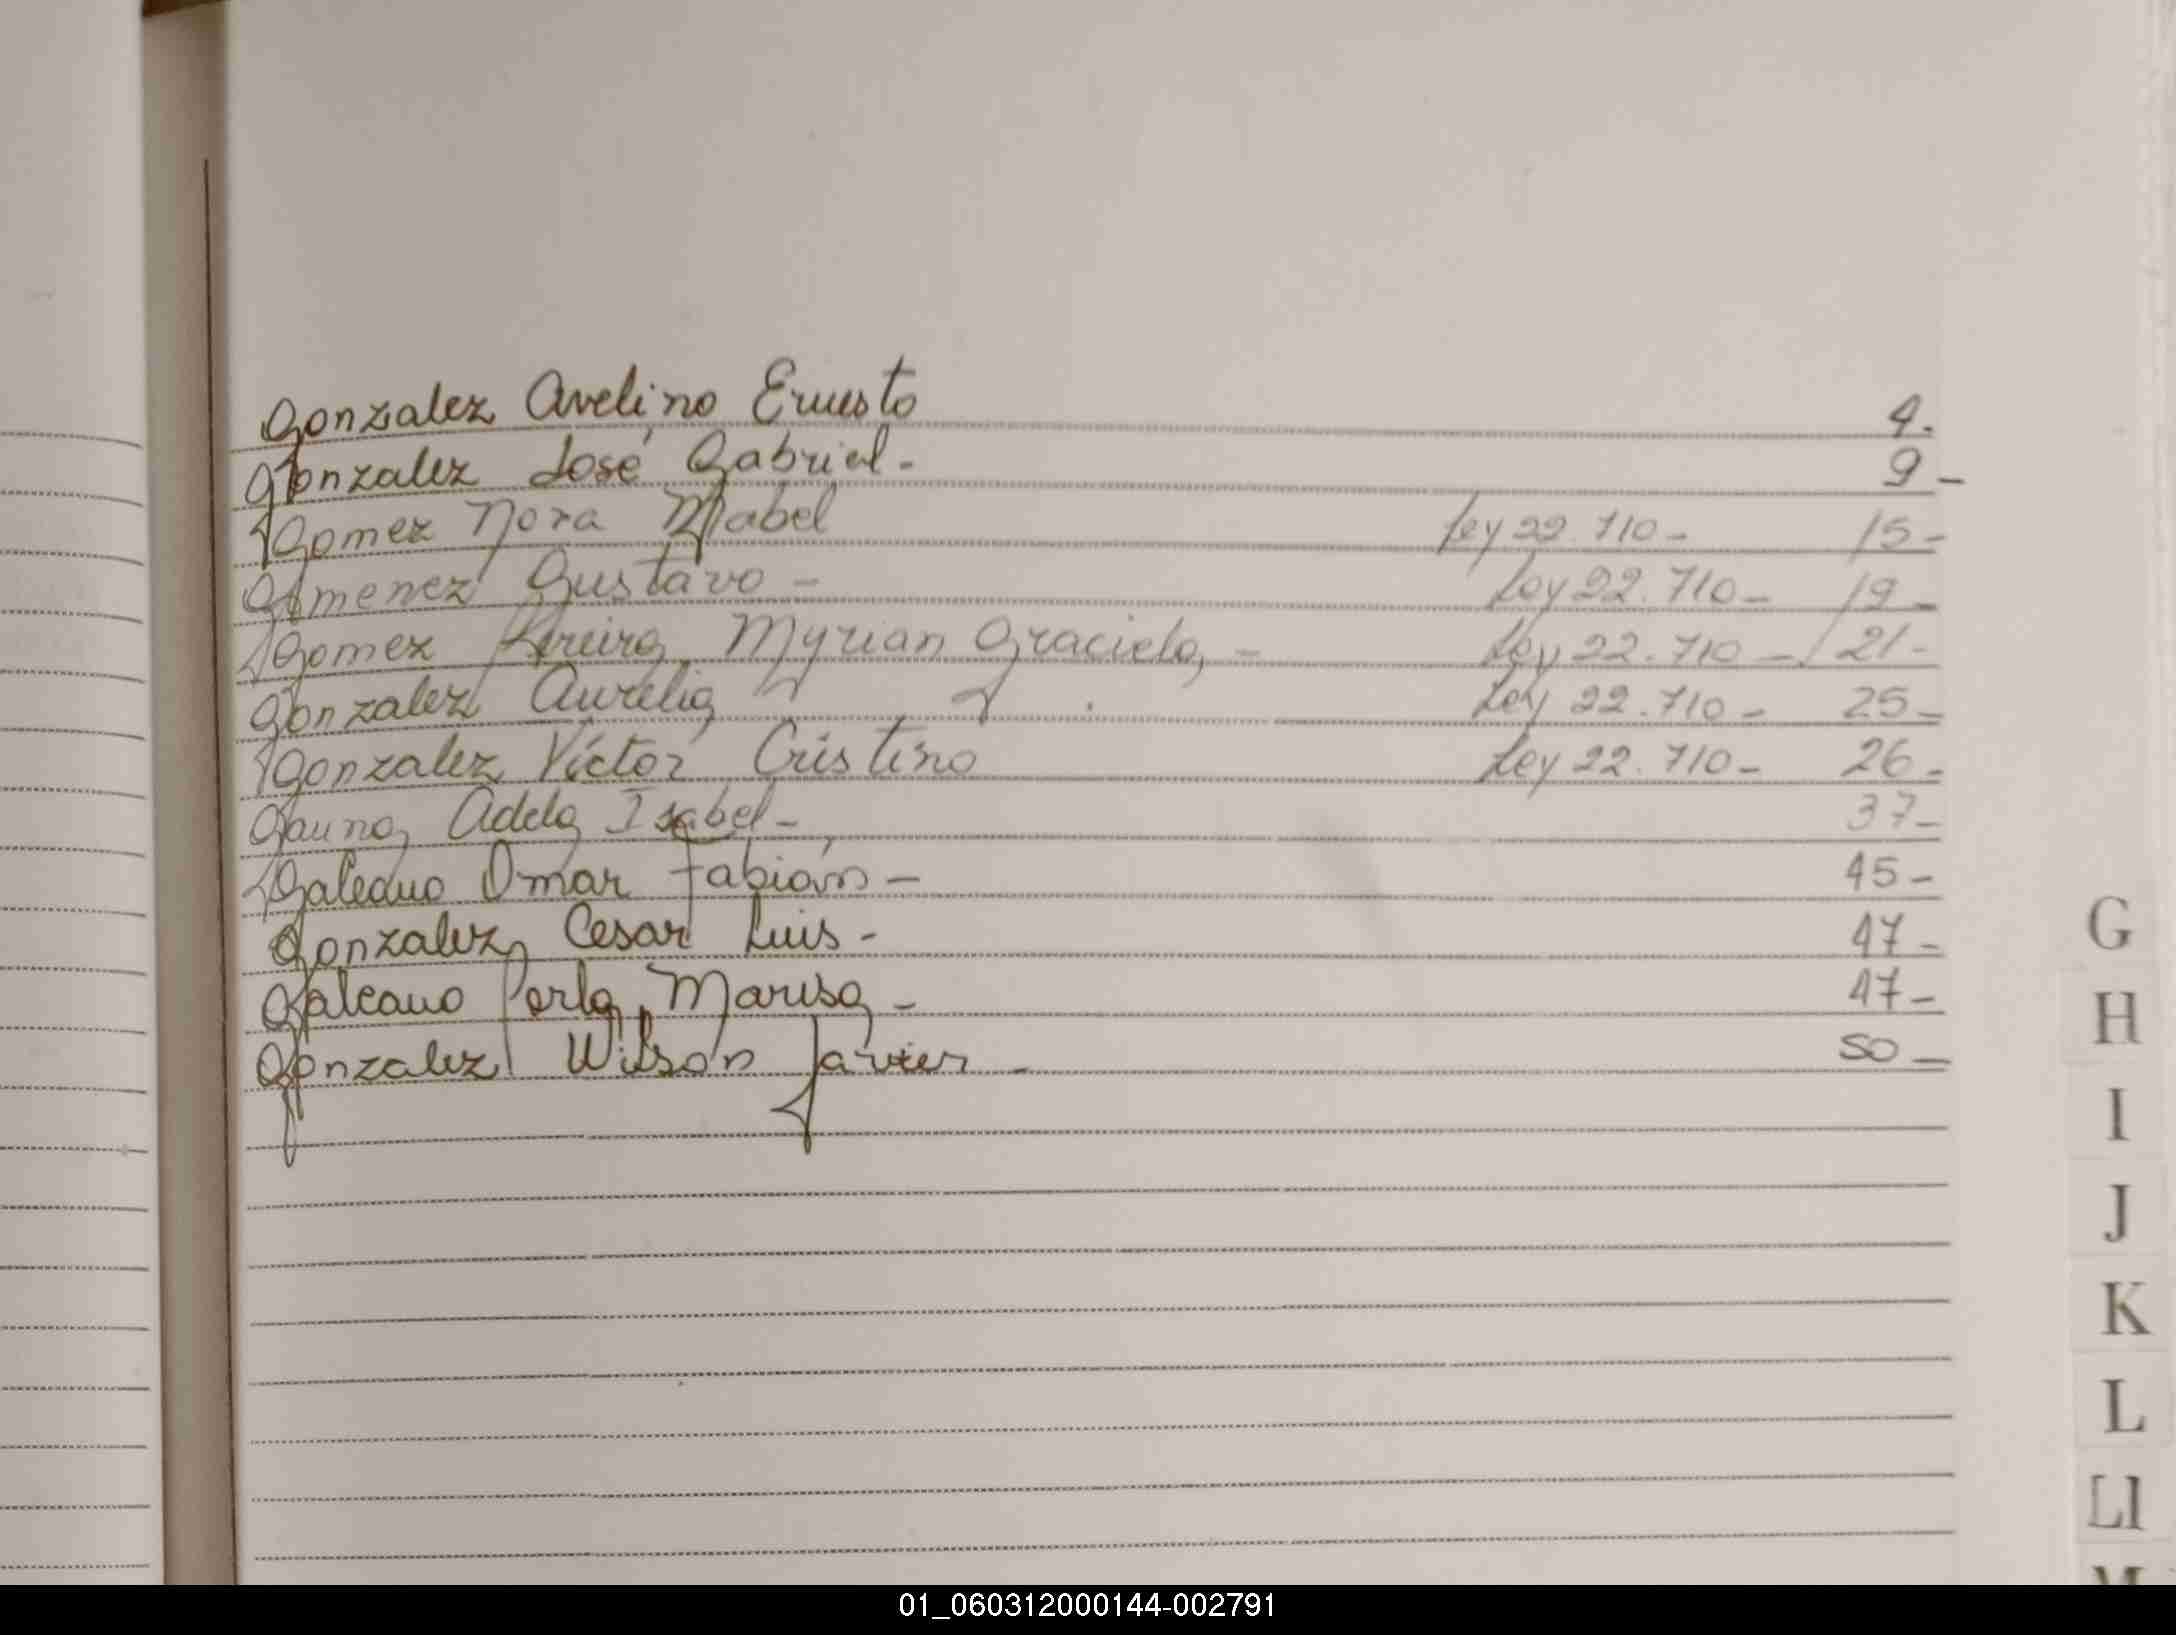 Gonzalez Avelino Ernesto 4.
Gonzalez José Gabriel - 9 -
Gomez Nora Mabel Ley 22.710 - 15 -
Gimenez Gustavo - Ley 22.710 - 19 -
Gomez Pereira Myrian Graciela - Ley 22.710 - 21 -
Gonzalez Aurelia Ley 22.710 - 25 -
Gonzalez Víctor Cristino Ley 22.710 - 26 -
Gauna Adela Isabel - 37 -
Galeano Omar Fabián - 45 -
Gonzalez Cesar Luis - 47 -
Galeano Perla Marisa - 47 -
Gonzalez Wilson Javier - 50 -
G
H
I
J
K
L
Ll
M
01_060312000144-002791